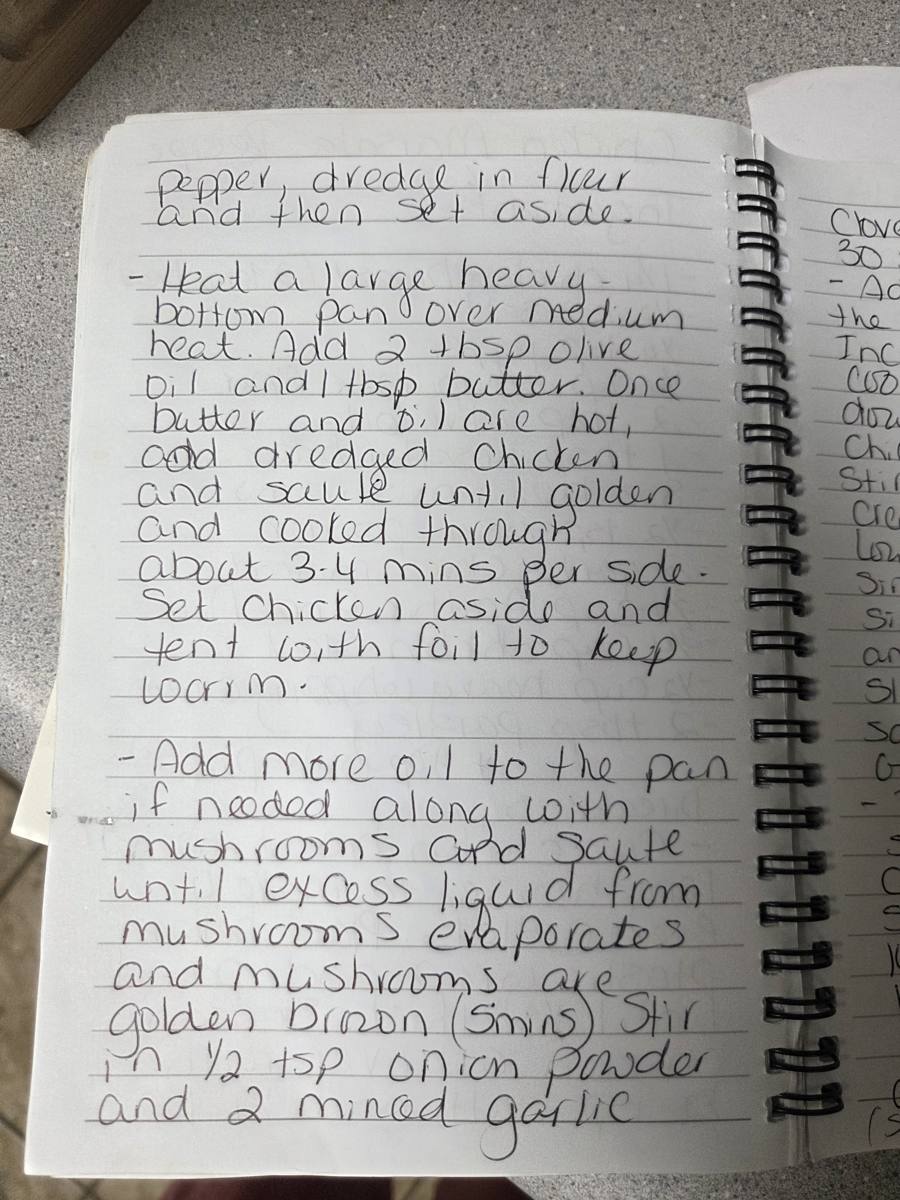 pepper, dredge in flour
and then set aside.
- Heat a large heavy-
bottom pan over medium
heat. Add 2 tbsp olive
oil and 1 tbsp butter. Once
butter and oil are hot,
add dredged chicken
and saute until golden
and cooked through
about 3-4 mins per side.
Set chicken aside and
tent with foil to keep
warm.
- Add more oil to the pan
if needed along with
mushrooms and saute
until excess liquid from
mushrooms evaporates
and mushrooms are
golden brown (5mins) Stir
in 1/2 tsp onion powder
and 2 minced garlic
Clove
30
- Ad
the
Inc
coo
dow
Chi
Stir
Cre
Low
Sim
Si
an
Sl
sa
G